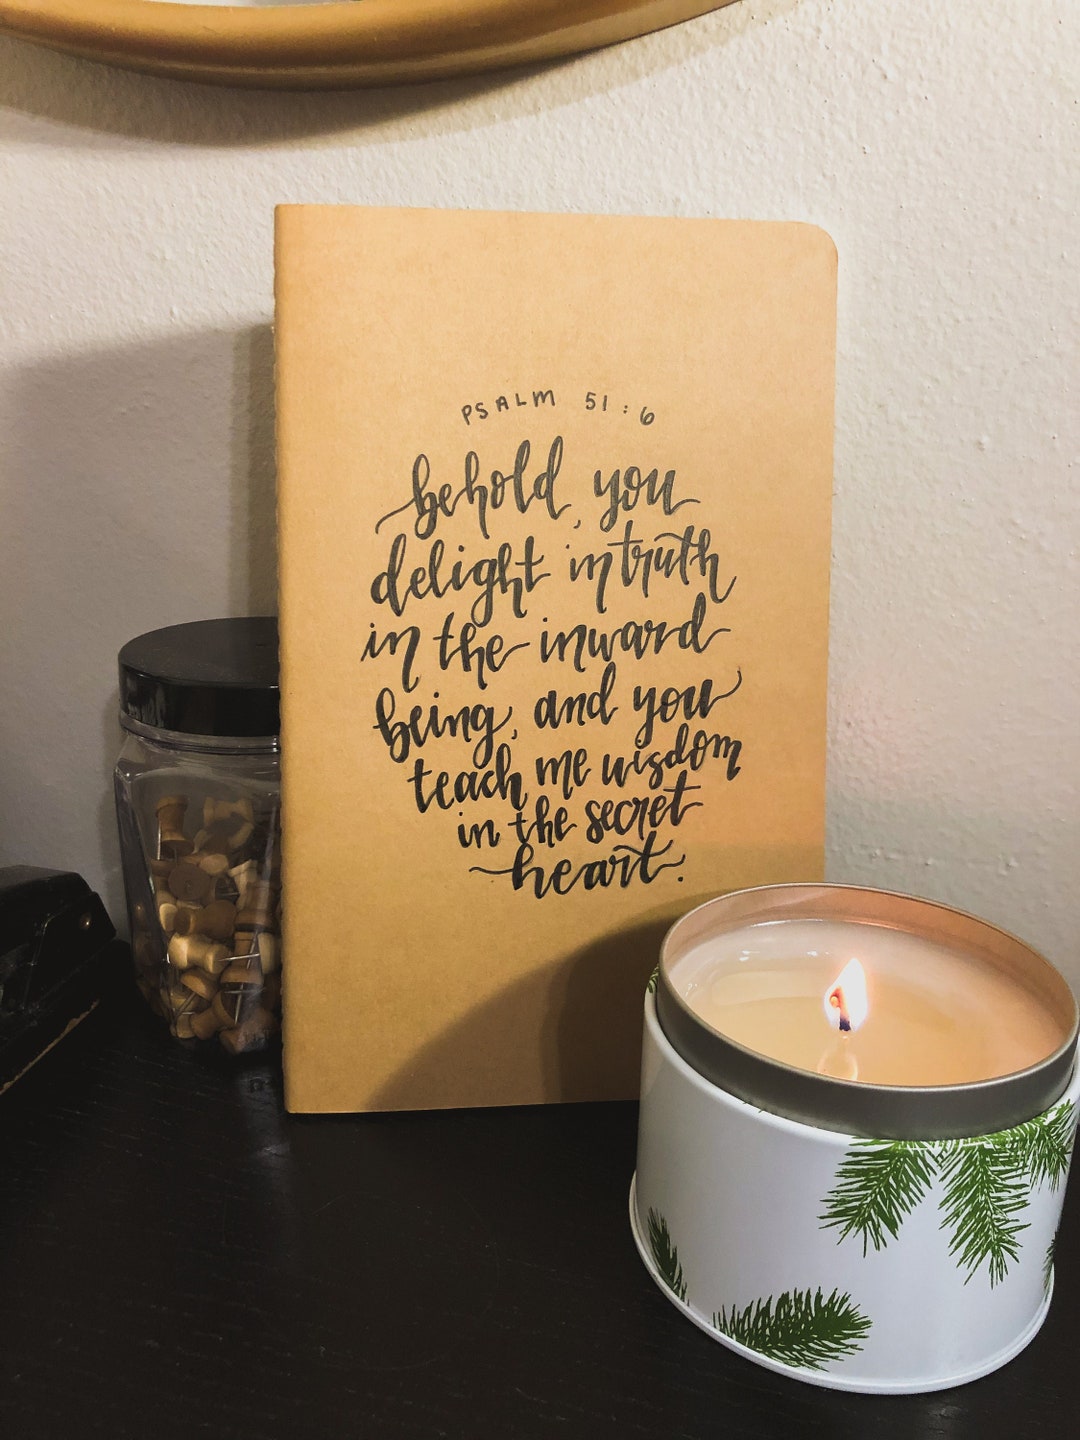 PSALM 51:6
behold, you
delight in truth
in the inward
being, and you
teach me wisdom
in the secret
heart.